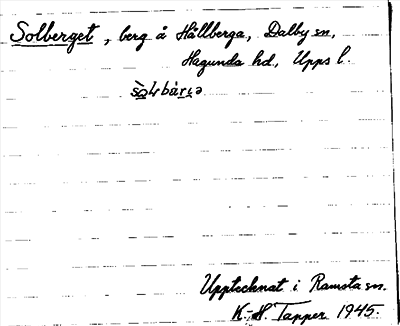 Solberget, berg å Hållberga, Dalby sn,
Hagunda hd, Upps l.
Upptecknat i Ramsta sn.
K.-H. Tapper 1945.